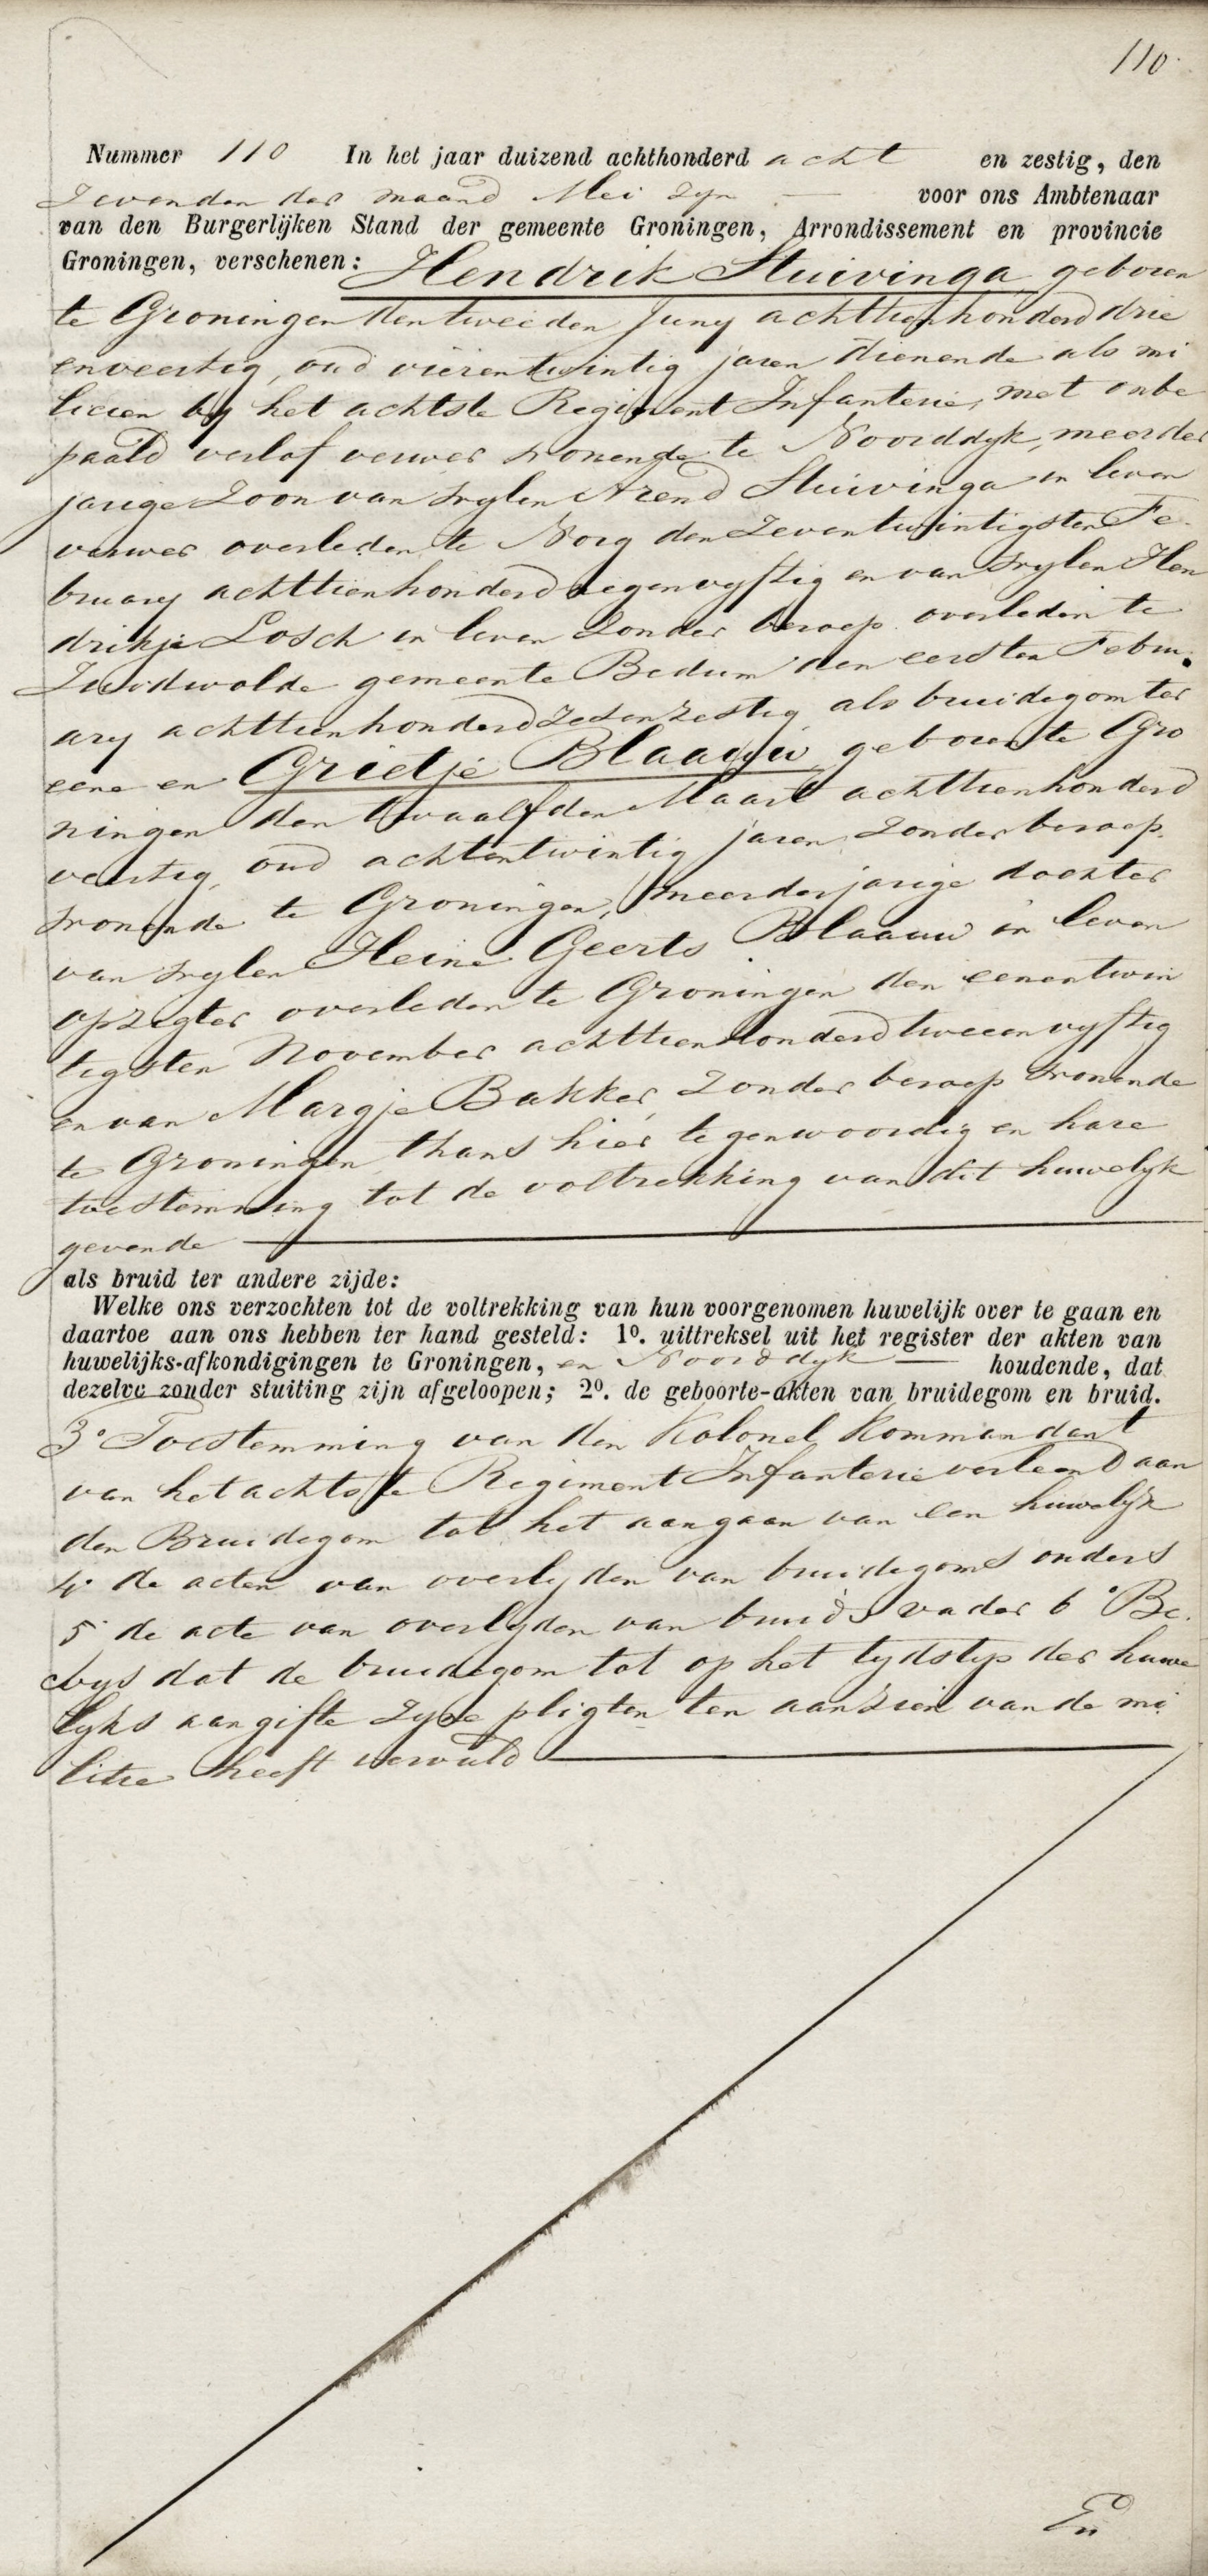 110.
Nummer 110 In het jaar duizend achthonderd acht en zestig, den
Zevenden der maand Mei zyn — voor ons Ambtenaar
van den Burgerlijken Stand der gemeente Groningen, Arrondissement en provincie
Groningen, verschenen: Hendrik Stuivinga, geboren
te Groningen den tweeden Juny achttienhonderd drie
enveertig, oud vierentwintig jaren dienende als mi
licien by het achtste Regiment Infanterie, met onbe
paald verlof verwer wonende te Noorddyk, meerder
jarige Zoon van wylen Arend Stuivinga in leven
verwer overleden te Norg den Zeventwintigsten Fe-
bruary achttienhonderd negenvyftig en van wylen Hen
drikje Losch in leven Zonder beroep overleden te
Zuidwolde gemeente Bedum den eersten Febru.
ary achttienhonderd Zesenzestig als bruidegom ter
eene en Grietje Blaauw geboren te Gro
ningen den twaalfden Maart achttienhonderd
veertig, oud achtentwintig jaren Zonder beroep
wonende te Groningen, meerderjarige dochter
van wylen Heine Geerts Blaauw in leven
opzigter overleden te Groningen den eenentwin
tigsten November achttienhonderd tweeenvyftig
en van Margje Bakker, Zonder beroep wonende
te Groningen thans hier tegenwoordig en hare
toestemming tot de voltrekking van dit huwelyk
gevende
als bruid ter andere zijde:
Welke ons verzochten tot de voltrekking van hun voorgenomen huwelijk over te gaan en
daartoe aan ons hebben ter hand gesteld: 1º. uittreksel uit het register der akten van
huwelijks-afkondigingen te Groningen, en Noorddyk — houdende, dat
dezelve zonder stuiting zijn afgeloopen; 2º. de geboorte-akten van bruidegom en bruid.
3º Toestemming van den Kolonel Kommandant
van het achtste Regiment Infanterie verleend aan
den Bruidegom tot het aangaan van een huwelyk
4º de acten van overlyden van bruidegoms ouders
5º de acte van overlyden van bruids vader 6º Be.
wys dat de bruidegom tot op het tydstip der huwe
lyks aangifte Zyne pligten ten aanzien van de mi
litie heeft vervuld
En